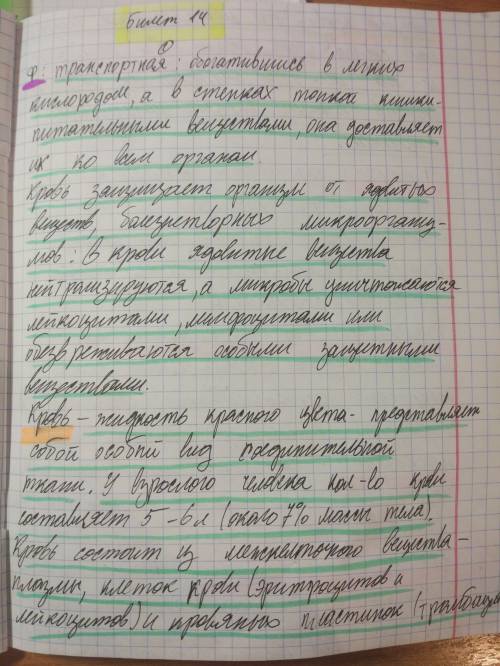 Билет 14
Ф: транспортная: обогатившись в легких
кислородом, а в стенках тонкой кишки-
питательными веществами, она доставляет
их ко всем органам
Кровь защищает организм от ядовитых
веществ, болезнетворных микроорганиз-
мов: В крови ядовитые вещества
нейтрализируются, а микробы уничтожаются
лейкоцитами, лимфоцитами или
обезвреживаются особыми защитными
веществами.
Кровь - жидкость красного цвета- представляет
собой особый вид соединительной
ткани. У взрослого человека кол-во крови
составляет 5-6л (около 7% массы тела).
Кровь состоит из межклеточного вещества-
плазмы, клеток крови (эритроцитов и
лейкоцитов) и кровяных пластинок (тромбоци